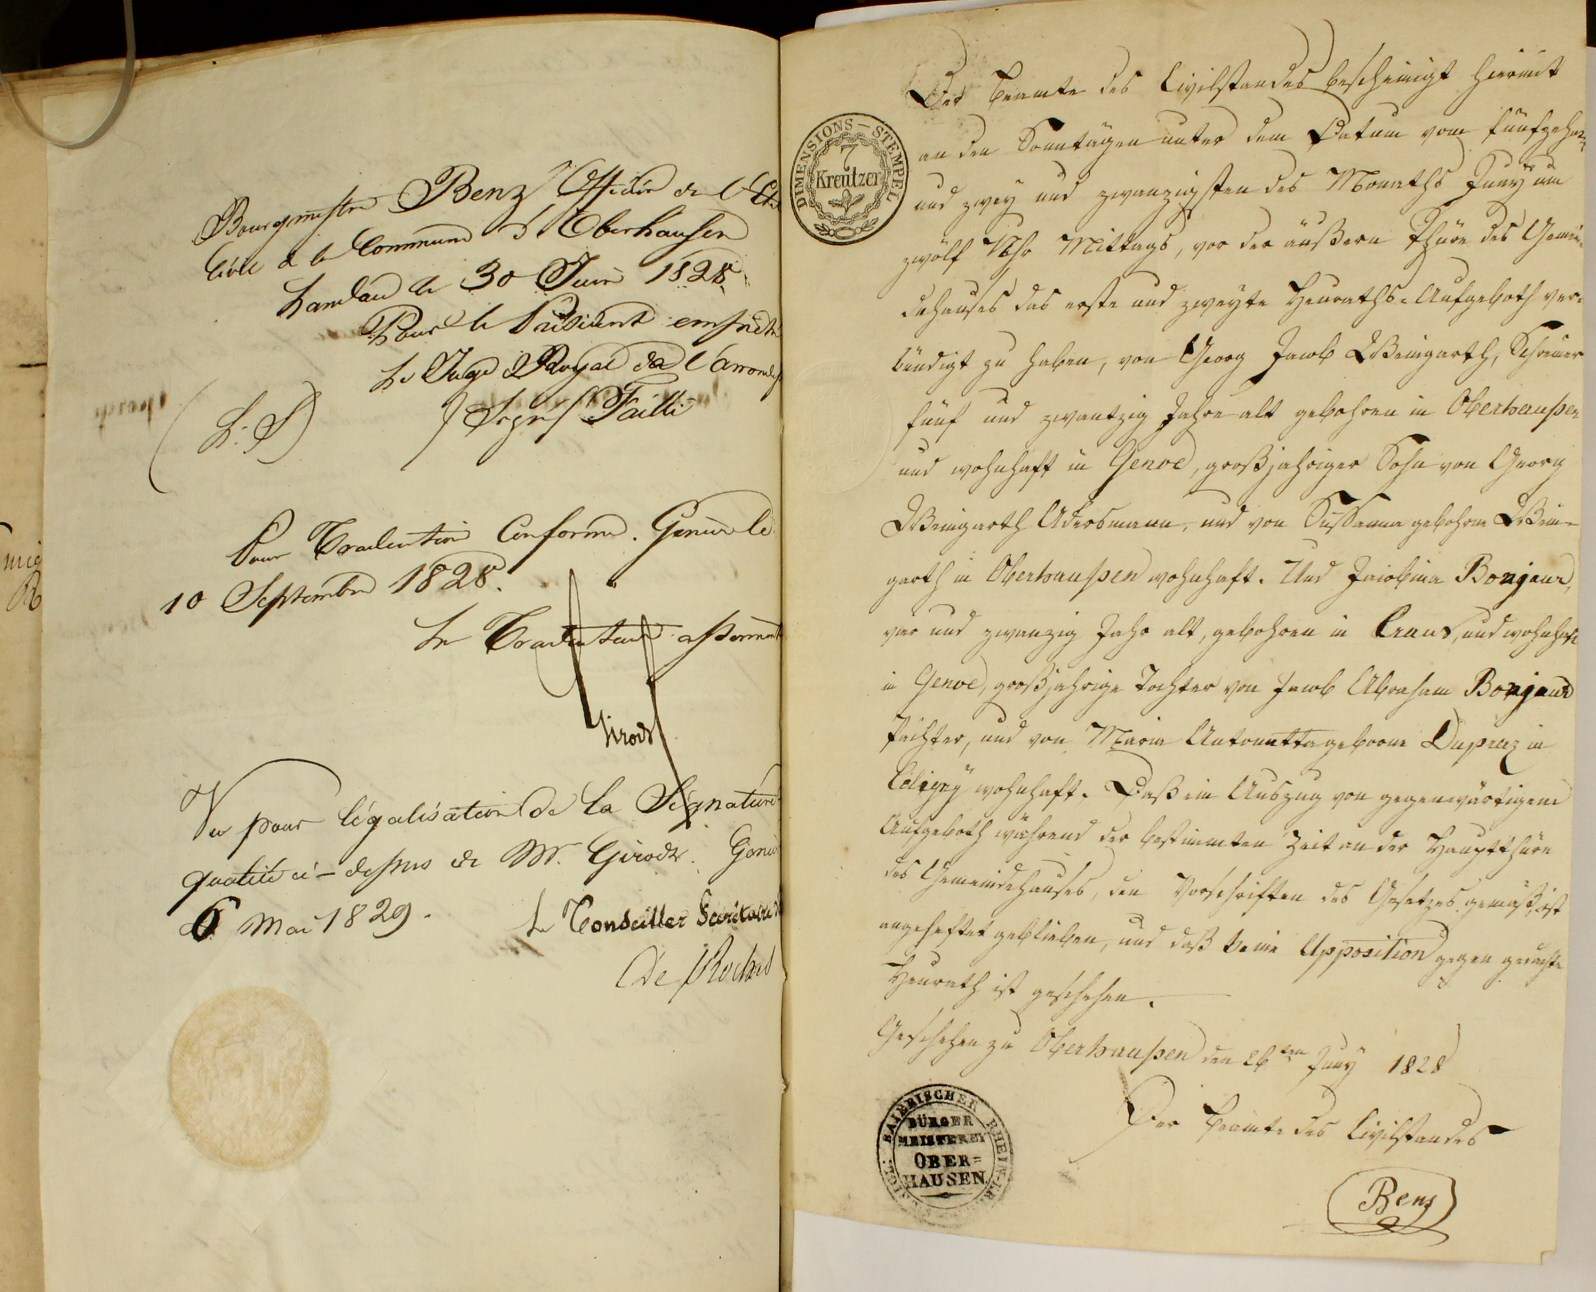 Bourgmestre Benz Officier de l'Etat
Civil de la Commune d'Oberhausen
Landau le 30 Juin 1828.
Pour le Président empêché
Le Juge Royal de l'arrond
(L. S) Signé Failli
Pour Traduction Conforme. Genève le
10 Septembre 1828.
Le Traducteur assermenté
Girodz
Vu pour légalisation de la Signature
qualité ci-dessus de Mr. Girodz. Genève
6 Mai 1829.
Le Conseiller Secrétaire
De Roches
DIMENSIONS-STEMPEL
7
Kreutzer
Der Beamte des Civilstandes bescheinigt hiermit
an den Sonntägen unter dem Datum vom fünfzehn-
und zwey und zwanzigsten des Monaths Juny um
zwölf Uhr Mittags, vor der äußern Thüre des Gemein-
dehauses das erste und zweyte Heuraths-Aufgeboth ver-
kündigt zu haben, von Georg Jacob Weingarth, Schreiner
fünf und zwantzig Jahre alt gebohren in Oberhaußen
und wohnhaft in Genve, großjähriger Sohn von Georg
Weingarth Ackersmann, und von Susanna gebohrne Wein-
garth in Oberhaußen wohnhaft. Und Jacobina Bonjour,
vier und zwanzig Jahr alt, gebohren in Crans, und wohnhaft
in Genve, großjährige Tochter von Jacob Abraham Bonjour
Pächter, und von Maria Antonetta geborne Dupraz in
Coligny wohnhaft. Daß ein Auszug von gegenwärtigem
Aufgeboth während der bestimmten Zeit an der Hauptthüre
des Gemeindehauses, den Vorschriften des Gesetzes gemäß, ist
angeheftet geblieben, und daß keine Opposition gegen gedachte
Heurath ist geschehen.
Geschehen zu Oberhaußen den 26ten Juny 1828
Der Beamte des Civilstandes
Benz
KÖNIGL. BAIERISCHER RHEIN-KR
BÜRGER
MEISTEREY
OBER=
HAUSEN